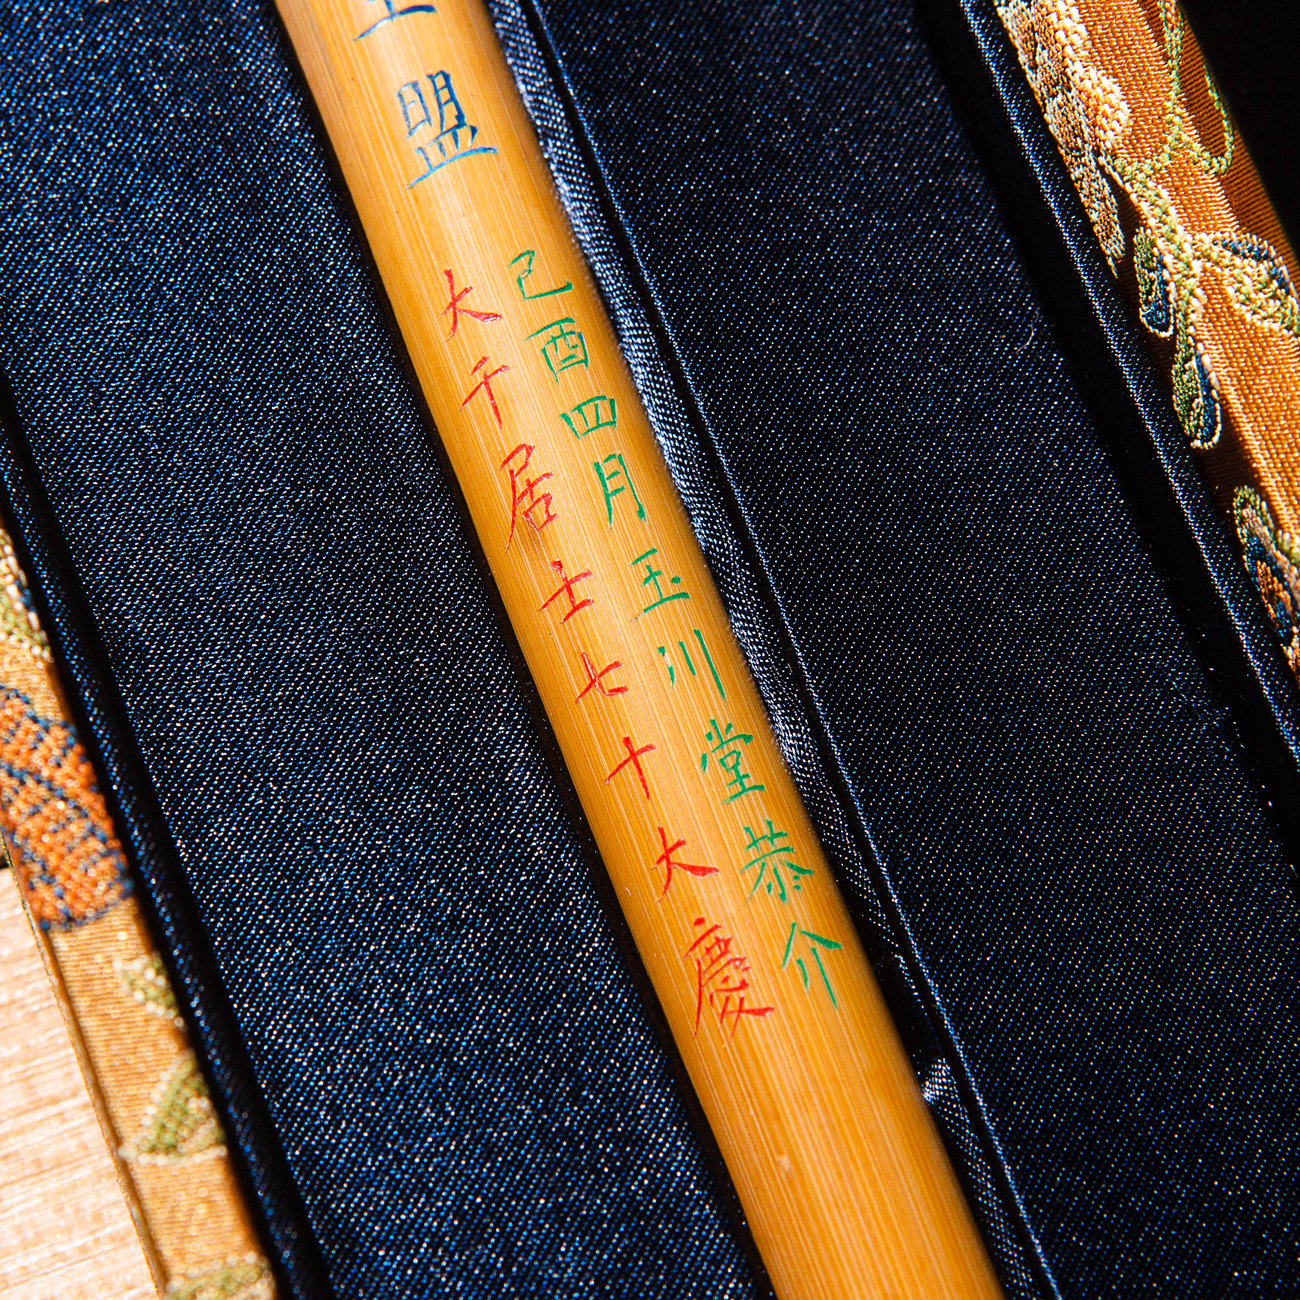 主盟
己酉四月玉川堂恭介
大千居士七十大慶